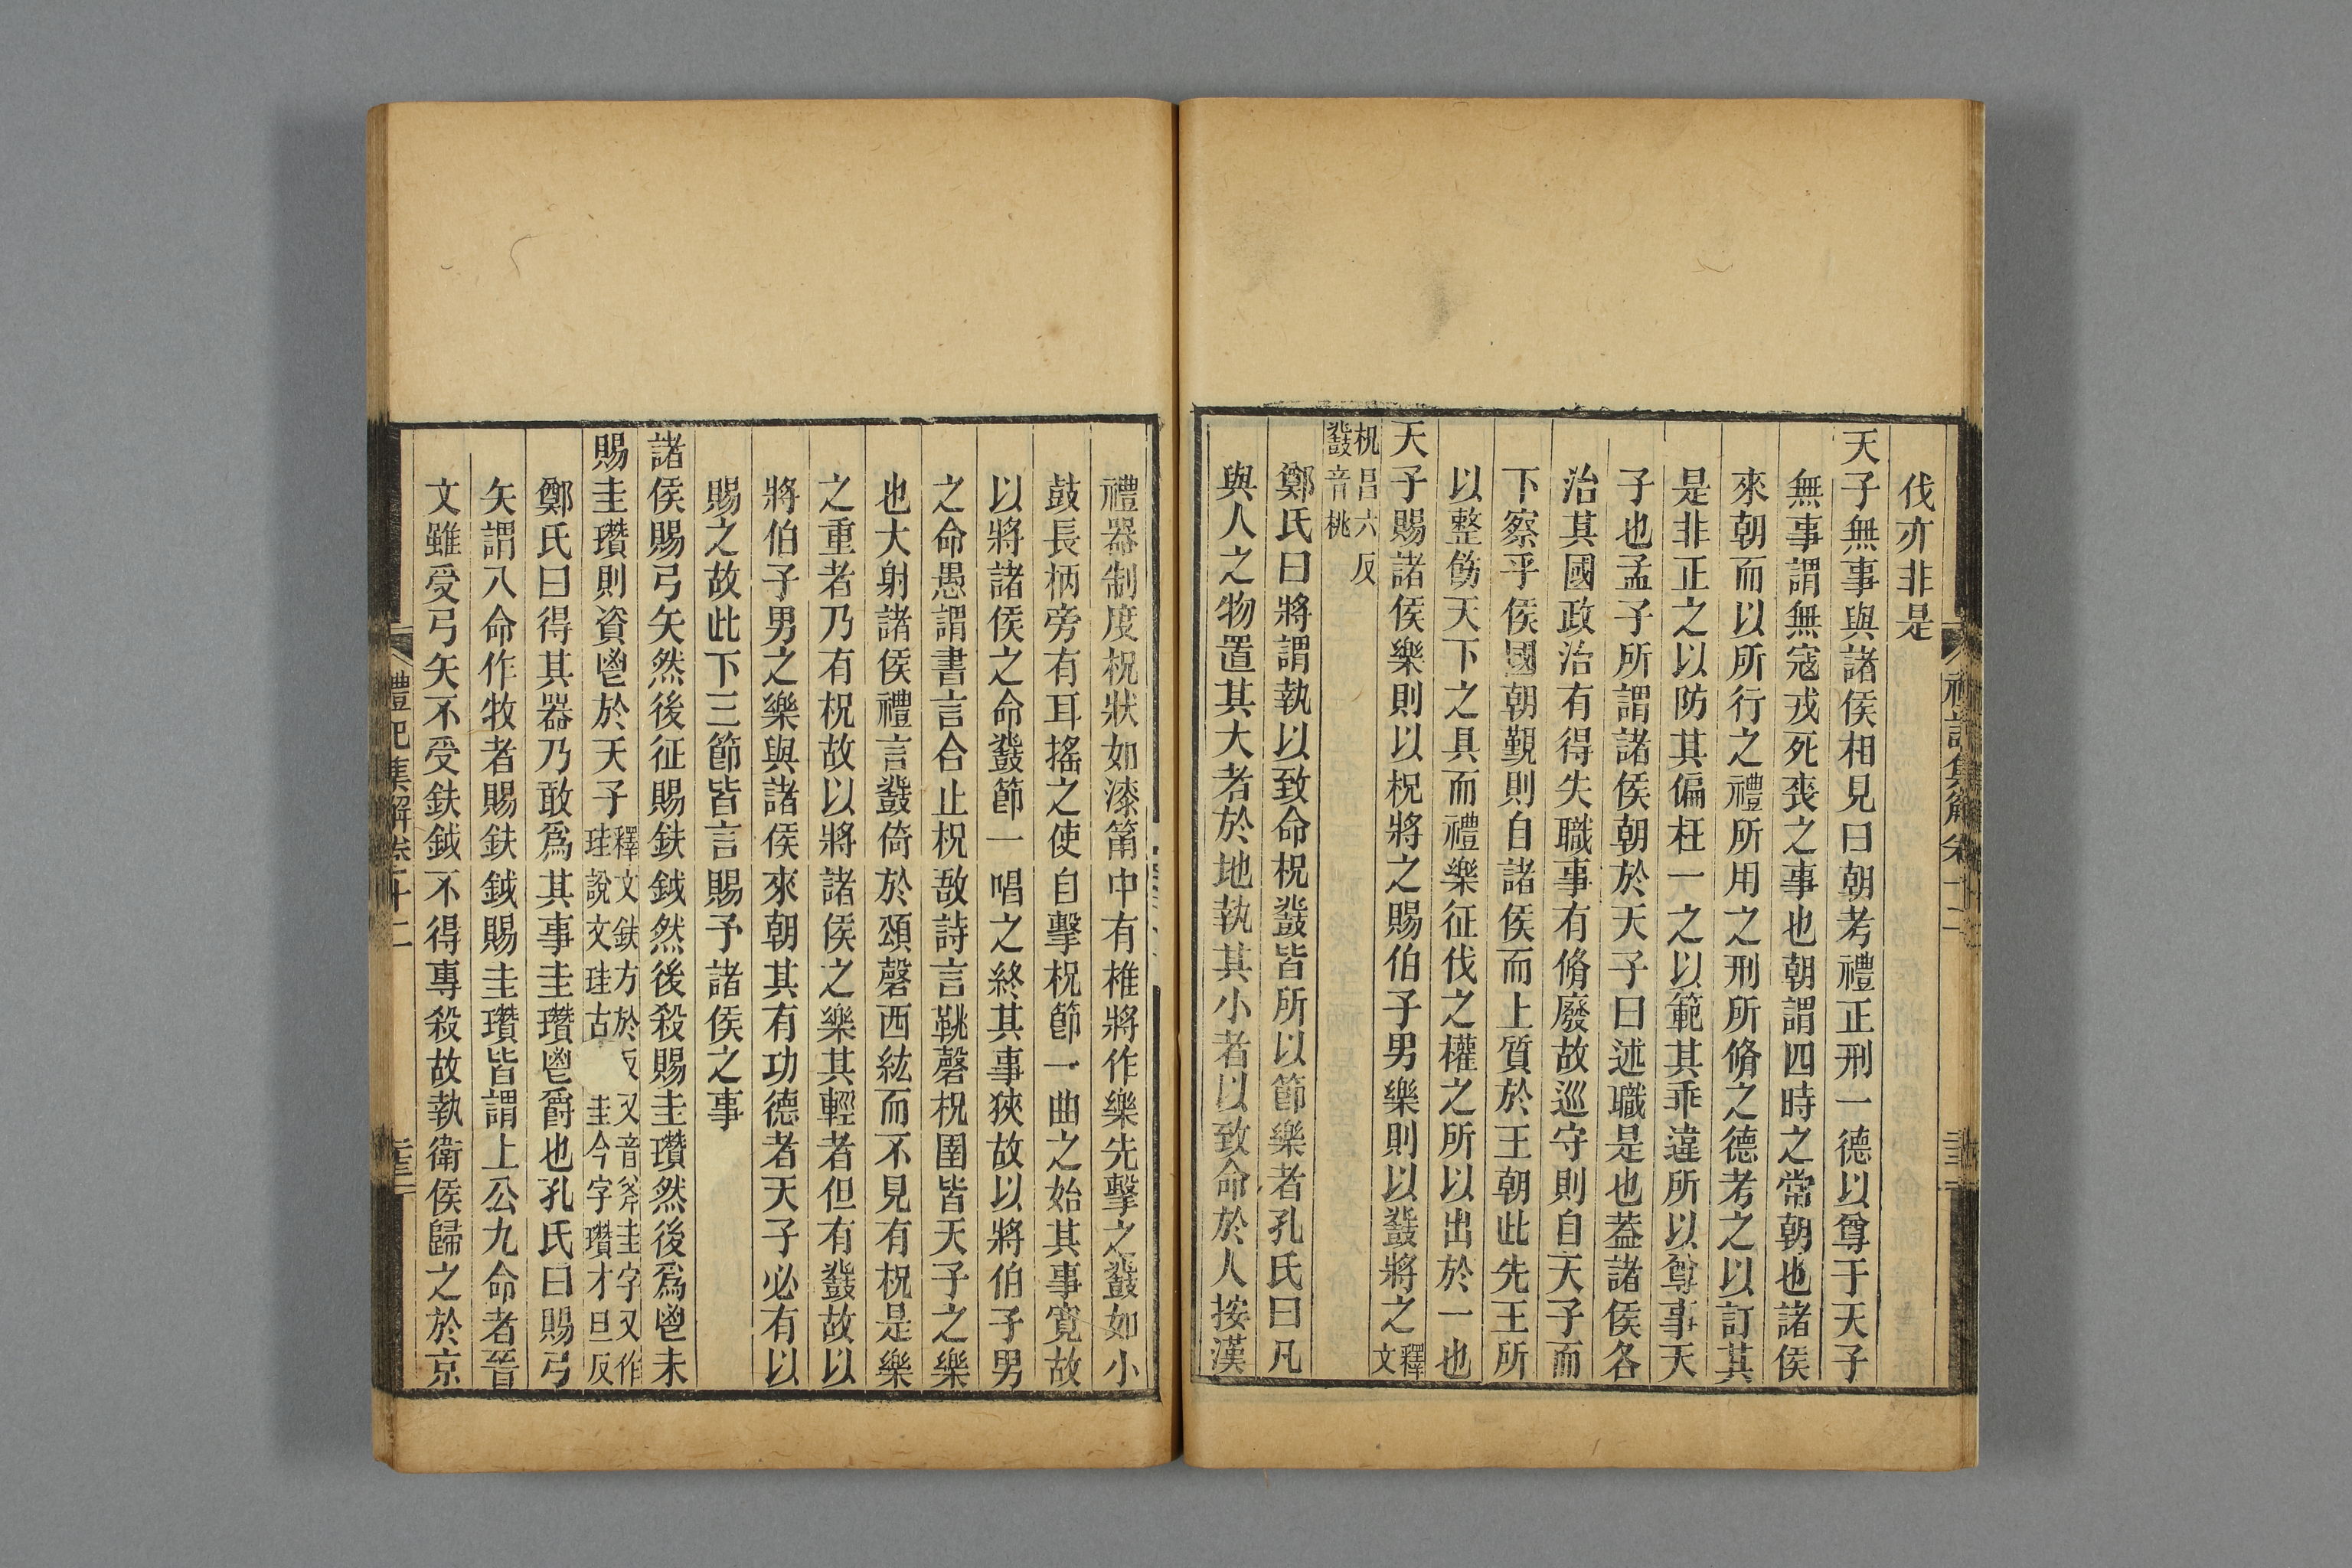 伐亦非是
天子無事與諸侯相見曰朝考禮正刑一德以尊于天子
無事謂無寇戎死喪之事也朝謂四時之常朝也諸侯
來朝而以所行之禮所用之刑所脩之德考之以訂其
是非正之以防其偏枉一之以範其乖違所以尊事天
子也孟子所謂諸侯朝於天子曰述職是也蓋諸侯各
治其國政治有得失職事有脩廢故巡守則自天子而
下察乎侯國朝覲則自諸侯而上質於王朝此先王所
以整飭天下之具而禮樂征伐之權之所以出於一也
天子賜諸侯樂則以柷將之賜伯子男樂則以鼗將之釋文
柷昌六反
鼗音桃
鄭氏曰將謂執以致命柷鼗皆所以節樂者孔氏曰凡
與人之物置其大者於地執其小者以致命於人按漢
禮器制度柷狀如漆筩中有椎將作樂先擊之鼗如小
鼓長柄旁有耳搖之使自擊柷節一曲之始其事寬故
以將諸侯之命鼗節一唱之終其事狹故以將伯子男
之命愚謂書言合止柷敔詩言鞉磬柷圉皆天子之樂
也大射諸侯禮言鼗倚於頌磬西紘而不見有柷是樂
之重者乃有柷故以將諸侯之樂其輕者但有鼗故以
將伯子男之樂與諸侯來朝其有功德者天子必有以
賜之故此下三節皆言賜予諸侯之事
諸侯賜弓矢然後征賜鈇鉞然後殺賜圭瓚然後爲鬯未
賜圭瓚則資鬯於天子
釋文鈇方於反又音斧圭字又作
珪說文珪古圭今字瓚才旦反
鄭氏曰得其器乃敢爲其事圭瓚鬯爵也孔氏曰賜弓
矢謂八命作牧者賜鈇鉞賜圭瓚皆謂上公九命者晉
文雖受弓矢不受鈇鉞不得專殺故執衛侯歸之於京
禮記集解卷十二